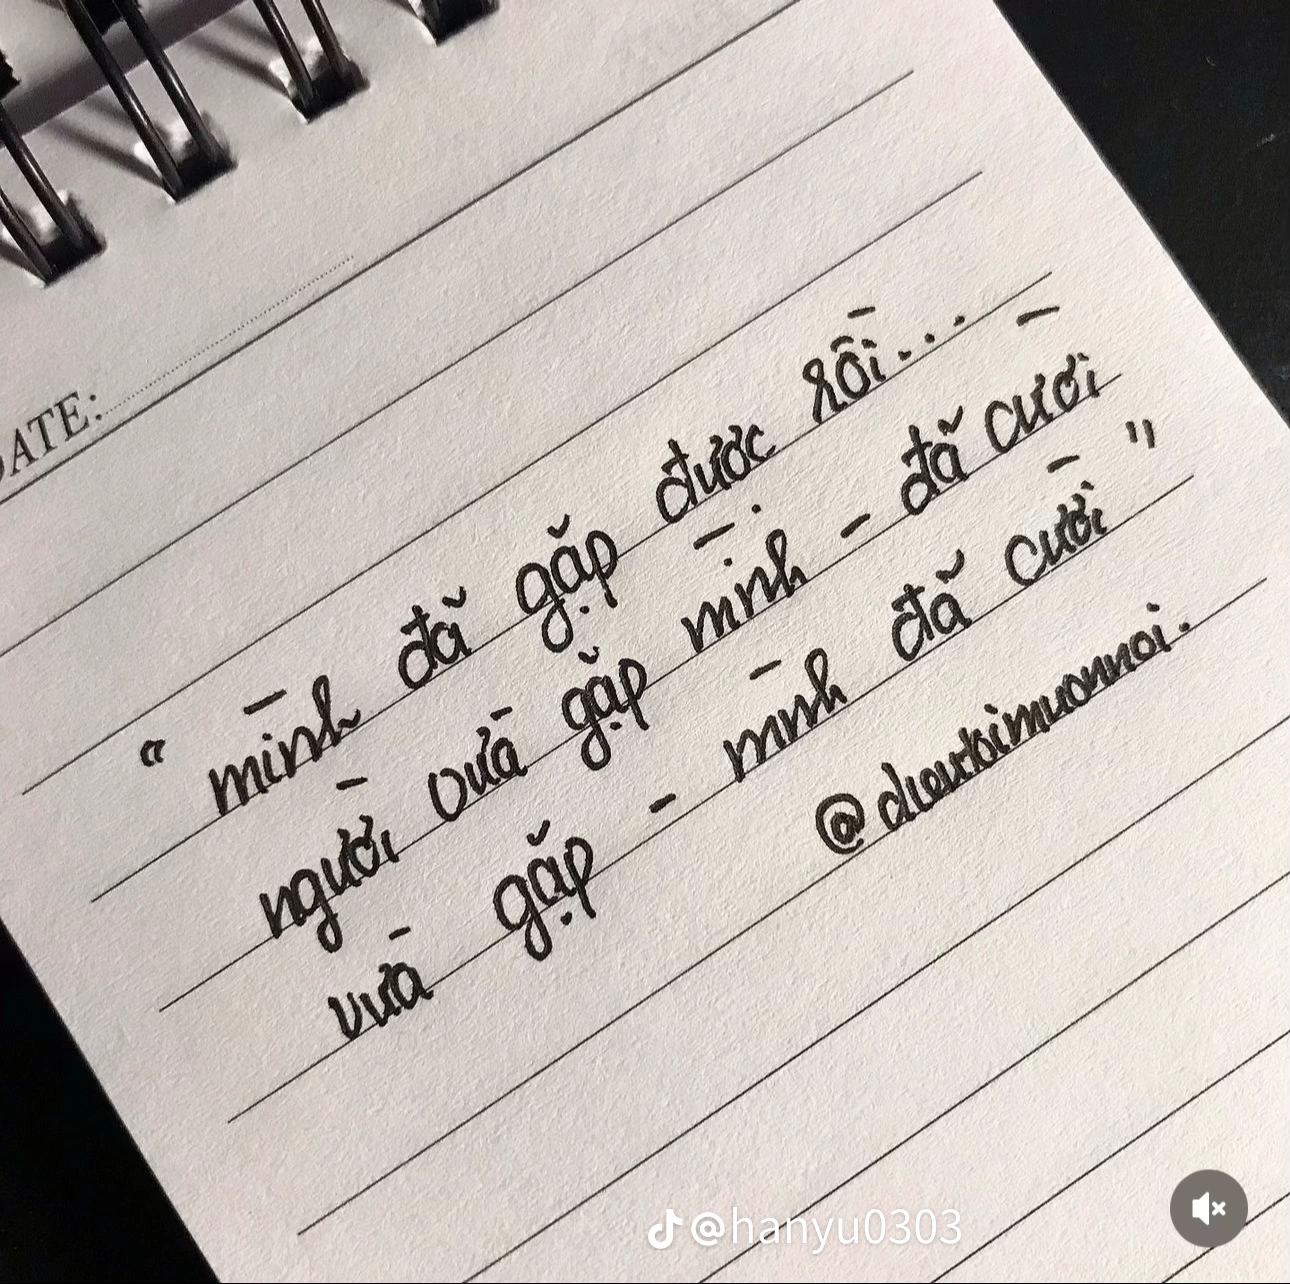 DATE:
“ mình đã gặp được rồi...
người vừa gặp mình - đã cười
vừa gặp - mình đã cười "
@dieutoimuonnoi.
@hanyu0303